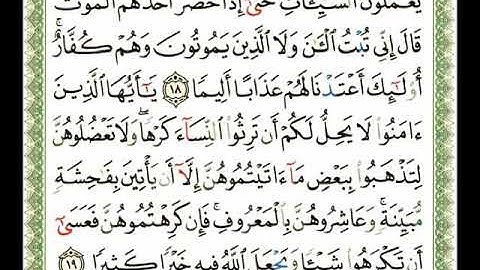 يَعْمَلُونَ ٱلسَّيِّـَٔاتِ حَتَّىٰٓ إِذَا حَضَرَ أَحَدَهُمُ ٱلْمَوْتُ
قَالَ إِنِّى تُبْتُ ٱلْـَٰٔنَ وَلَا ٱلَّذِينَ يَمُوتُونَ وَهُمْ كُفَّارٌ ۚ
أُو۟لَـٰٓئِكَ أَعْتَدْنَا لَهُمْ عَذَابًا أَلِيمًا ١٨ يَـٰٓأَيُّهَا ٱلَّذِينَ
ءَامَنُوا۟ لَا يَحِلُّ لَكُمْ أَن تَرِثُوا۟ ٱلنِّسَآءَ كَرْهًا ۖ وَلَا تَعْضُلُوهُنَّ
لِتَذْهَبُوا۟ بِبَعْضِ مَآ ءَاتَيْتُمُوهُنَّ إِلَّآ أَن يَأْتِينَ بِفَـٰحِشَةٍ
مُّبَيِّنَةٍ ۚ وَعَاشِرُوهُنَّ بِٱلْمَعْرُوفِ ۚ فَإِن كَرِهْتُمُوهُنَّ فَعَسَىٰٓ
أَن تَكْرَهُوا۟ شَيْـًٔا وَيَجْعَلَ ٱللَّهُ فِيهِ خَيْرًا كَثِيرًا ١٩